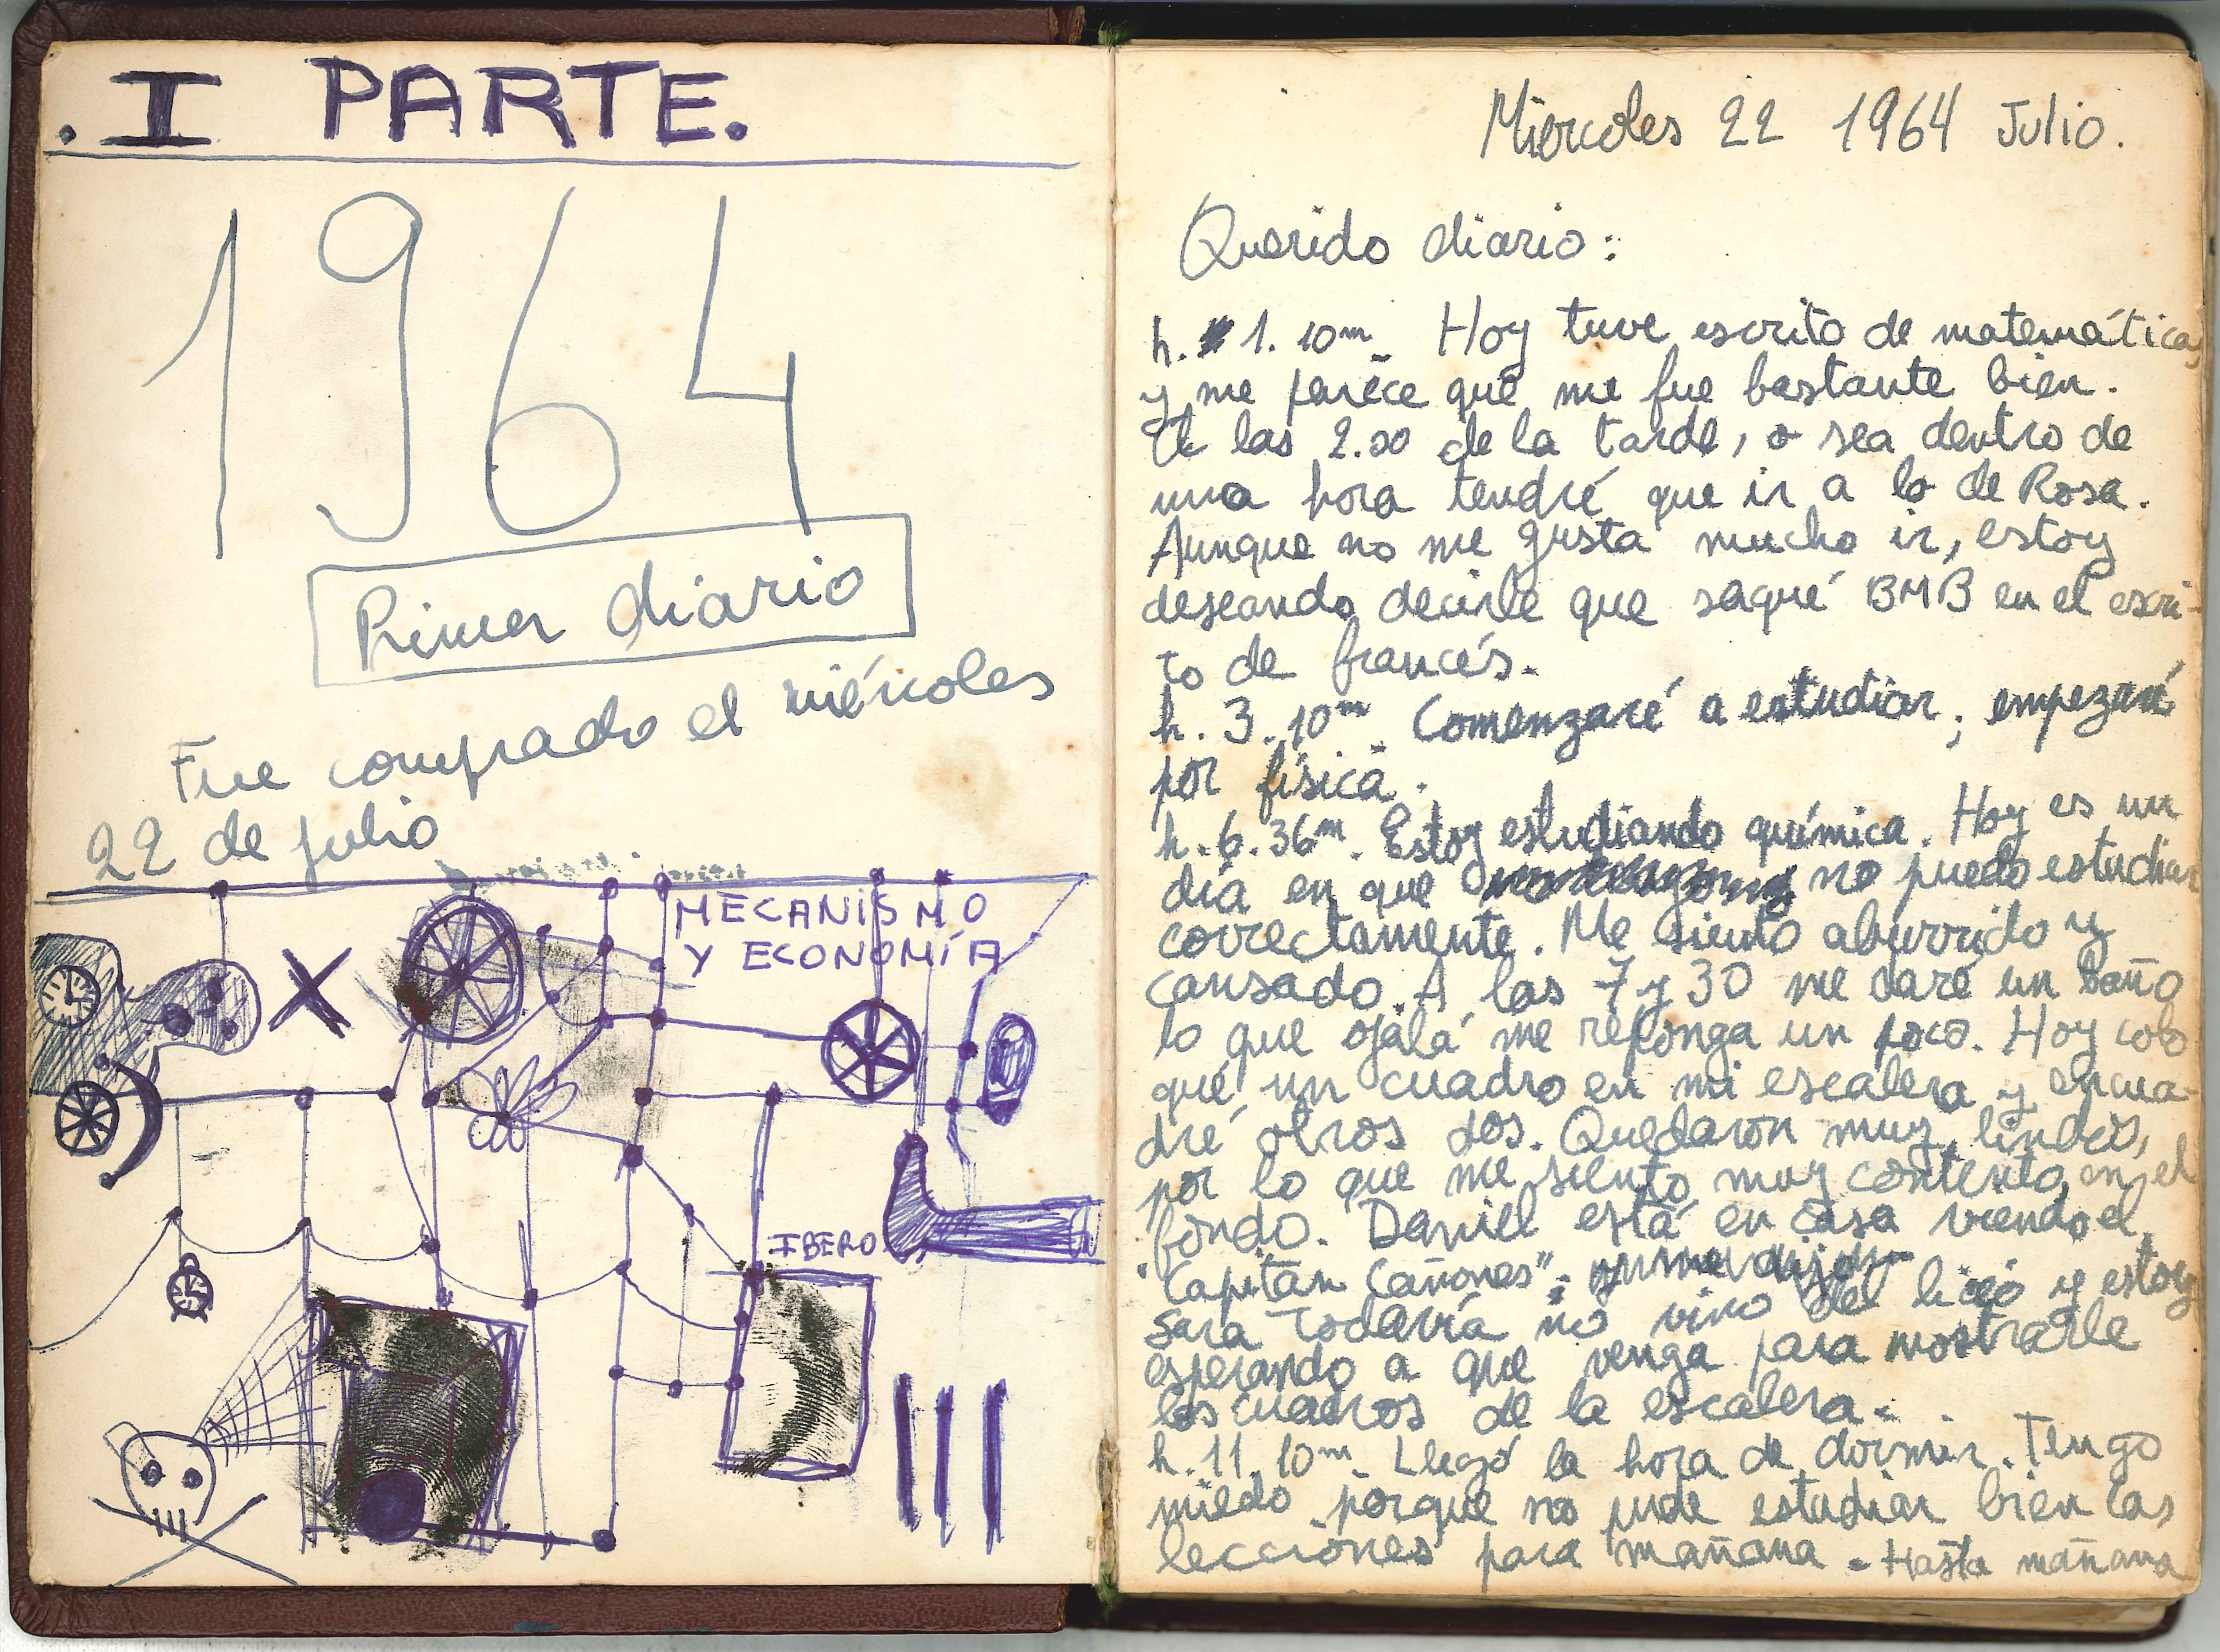 . I PARTE.
1964
Primer diario
Fue comprado el miércoles
22 de julio
MECANISMO
Y ECONOMÍA
IBERO
Miercoles 22 1964 Julio.
Querido diario:
h. 1. 10m. Hoy tuve escrito de matemáticas
y me parece que me fue bastante bien.
A las 2.00 de la tarde, o sea dentro de
una hora tendré que ir a lo de Rosa.
Aunque no me gusta mucho ir, estoy
deseando decirle que saqué BMB en el escri-
to de francés.
h. 3. 10m. Comenzaré a estudiar; empezaré
por física.
h. 6. 36m. Estoy estudiando química. Hoy es un
día en que no puedo estudiar
correctamente. Me siento aburrido y
cansado. A las 7 y 30 me daré un baño
lo que ojalá me reponga un poco. Hoy colo
qué un cuadro en mi escalera y encua-
dré otros dos. Quedaron muy lindos,
por lo que me siento muy contento en el
fondo. Daniel está en casa viendo el
"Capitán Cañones";
Sara todavía no vino del liceo y estoy
esperando a que venga para mostrarle
los cuadros de la escalera.
h. 11. 10m. Llegó la hora de dormir. Tengo
miedo porque no pude estudiar bien las
lecciones para mañana. Hasta mañana